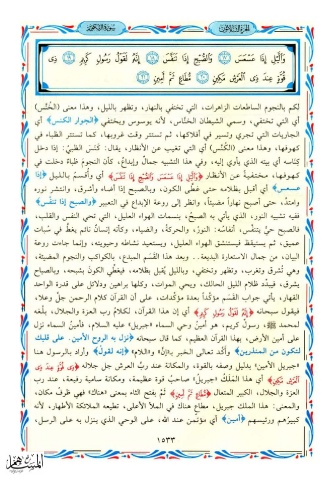 الجزء الثلاثون
سورة التكوير
وَٱلَّيْلِ إِذَا عَسْعَسَ ﴿١٧﴾ وَٱلصُّبْحِ إِذَا تَنَفَّسَ ﴿١٨﴾ إِنَّهُۥ لَقَوْلُ رَسُولٍ كَرِيمٍ ﴿١٩﴾ ذِى
قُوَّةٍ عِندَ ذِى ٱلْعَرْشِ مَكِينٍ ﴿٢٠﴾ مُّطَاعٍ ثَمَّ أَمِينٍ ﴿٢١﴾
لكم بالنجوم الساطعات الزاهرات، التي تختفي بالنهار، وتظهر بالليل، وهذا معنى (الخُنَّس)
أي التي تختفي، وسمي الشيطان الخنَّاس، لأنه يوسوس ويختفي ﴿الجوار الكنس﴾ أي
الجاريات التي تجري وتسير في أفلاكها، ثم تستتر وقت غروبها، كما تستتر الظباء في
كهوفها، وهذا معنى (الكُنَّس) أي التي تغيب عن الأنظار، يقال: كَنَسَ الظبيُ: إذا دخل
كِناسه أي بيته الذي يأوي إليه، وفي هذا التشبيه جمالٌ وإبداعٌ، كأن النجوم ظباءٌ دخلت في
كهوفها، مختفيةً عن الأنظار ﴿والليل إذا عسعس والصبح إذا تنفس﴾ أي وأقسمُ بالليل ﴿إذا
عسعس﴾ أي أقبل بظلامه حتى غطَّى الكون، وبالصبح إذا أضاء وأشرق، وانتشر نوره
وامتدَّ، حتى أصبح نهاراً مضيئاً، وانظر إلى روعة الإبداع في التعبير ﴿والصبح إذا تنفس﴾
ففيه تشبيه النور، الذي يأتي به الصبحُ، بنسمات الهواء العليل، التي تحي النفس والقلب،
فالصبح حيٌّ يتنفَّس، أنفاسُه: النورُ، والحركةُ، والضياء، وكأنه إنسانٌ نائم يغطُّ في سُبات
عميق، ثم يستيقظ فيستنشق الهواء العليل، ويستعيد نشاطه وحيويته، وإنما جاءت روعة
البيان، من جمال الاستعارة البديعة.. وبعد هذا القَسَم المبدع، بالكواكب والنجوم المضيئة،
وهي تُشرق وتغرب، وتظهر وتختفي، وبالليل يُقبل بظلامه، فيغطي الكون بشبحه، وبالصباح
يشرق، فيبدِّد ظلام الليل الحالك، ويحي الموات، وكلها براهين ودلائل على قدرة الواحد
القهار، يأتي جواب القَسَم مؤكَّداً بعدة مؤكِّدات، على أن القرآن كلام الرحمن جلَّ وعلا،
فيقول سبحانه ﴿إنه لقول رسول كريم﴾ أي إن هذا القرآن، لكلامُ رب العزة والجلال، بلَّغه
لمحمد ﷺ، رسول كريم، هو أمينُ وحي السماء «جبريل» عليه السلام، فأمينُ السماء نزل
على أمين الأرض، بهذا القرآن العظيم، كما قال سبحانه ﴿نزل به الروح الأمين. على قلبك
لتكون من المنذرين﴾ وأكَّد تعالى الخبر بـ«إنَّ» و«اللام» ﴿إنه لقول﴾ وأراد بالرسول هنا
«جبريل الأمين» بدليل وصفه بالقوة، والمكانة عند ربِّ العرش جل جلاله ﴿ذي قوة عند ذي
العرش مكين﴾ أي هذا المَلَكُ «جبريلُ» صاحبُ قوة عظيمة، ومكانة سامية رفيعة، عند رب
العزة والجلال، الكبير المتعال ﴿مطاع ثم أمين﴾ ثَمَّ بفتح الثاء بمعنى «هناك» فهي ظرف مكان،
والمعنى: هذا الملك جبريل، مطاعٌ هناك في الملأ الأعلى، تطيعه الملائكة الأطهار، لأنه
كبيرهم ورئيسهم ﴿أمين﴾ أي مؤتمن عند الله، على الوحي الذي ينزل به على الرسل،
١٥٣٣